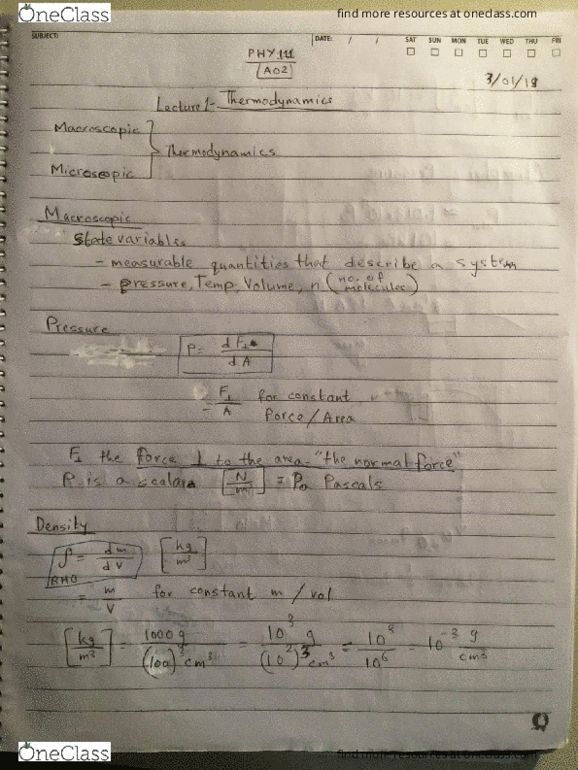 OneClass
find more resources at oneclass.com
SUBJECT:
DATE: / /
SAT SUN MON TUE WED THU FRI
PHY 111
(A02)
3/01/18
Lecture 1- Thermodynamics
Macroscopic
Thermodynamics
Microscopic
Macroscopic
State variables
- measurable quantities that describe a system
- pressure, Temp, Volume, n (no. of molecules)
Pressure
P = dF⊥ / dA
= F⊥ / A for constant force/Area
F⊥ the force ⊥ to the area - "the normal force"
P is a scalar [N/m²] = Pa Pascals
Density
ρ = dm / dV [kg/m³]
RHO
= m / V for constant m / vol
[kg/m³] = 1000 g / (100)³ cm³ = 10³ g / (10²)³ cm³ = 10³ / 10⁶ = 10⁻³ g / cm³
OneClass
find more resources at oneclass.com